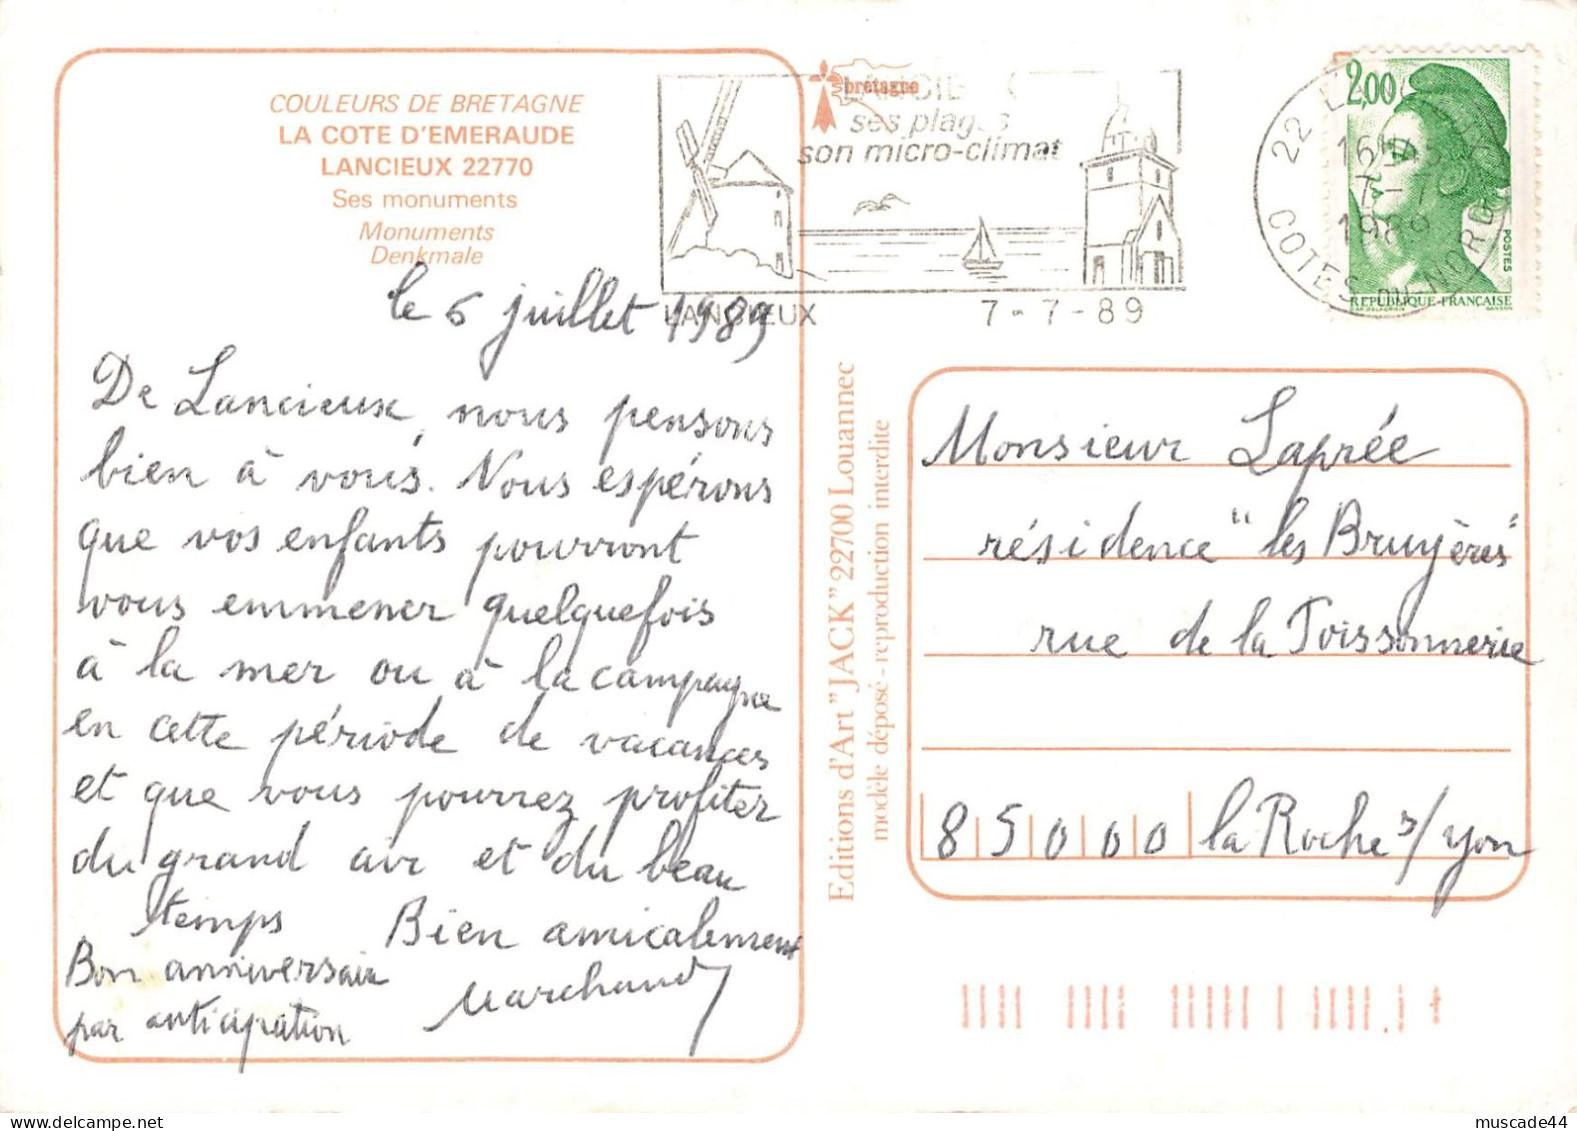 COULEURS DE BRETAGNE
LA COTE D'EMERAUDE
LANCIEUX 22770
Ses monuments
Monuments
Denkmale
bretagne
ses plages
son micro-climat
LANCIEUX 7-7-89
2,00
22
16H45
7-7
1989
COTES-DU-NORD
POSTES
REPUBLIQUE-FRANÇAISE
le 6 juillet 1989
De Lancieux, nous pensons
bien à vous. Nous espérons
que vos enfants pourront
vous emmener quelquefois
à la mer ou à la campagne
en cette période de vacances
et que vous pourrez profiter
du grand air et du beau
temps Bien amicalement
Bon anniversaire
par anticipation
Marchand
Editions d'Art "JACK" 22700 Louannec
modèle déposé - reproduction interdite
Monsieur Laprée
résidence "les Bruyères"
rue de la Poissonnerie
85000 la Roche s/yon
muscade44